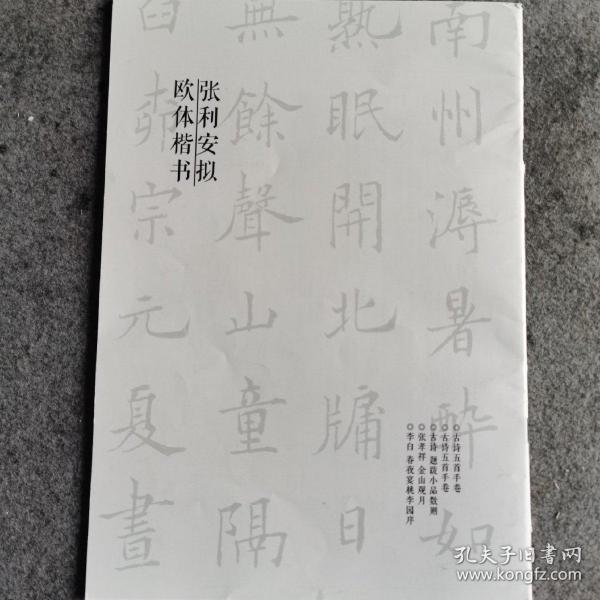 张利安拟
欧体楷书
南州溽暑醉如
熟眠開北牖日
無餘聲山童隔
臼桺宗元夏晝
古诗五首手卷
古诗五首手卷
古诗 题跋小品数则
张孝祥 金山观月
李白 春夜宴桃李园序
孔夫子旧书网
www.kongfz.com